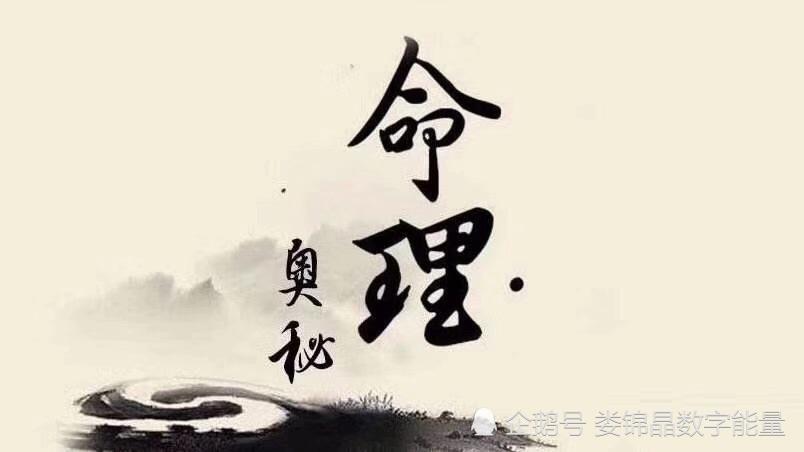 命理
奥秘
企鹅号 娄锦晶数字能量